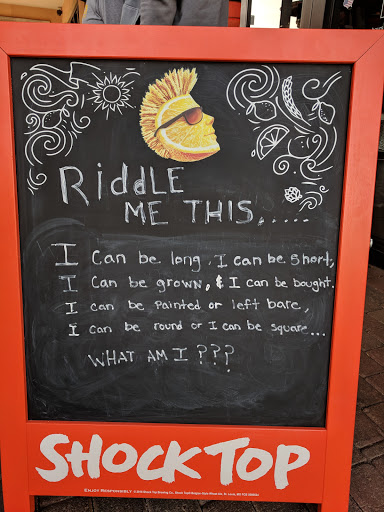 RiddLE
ME THIS.....
I Can be long, I can be short,
I Can be grown, & I can be bought.
I can be Painted or left bare,
I can be round or I can be square...
WHAT AM I ???
SHOCK TOP
ENJOY RESPONSIBLY